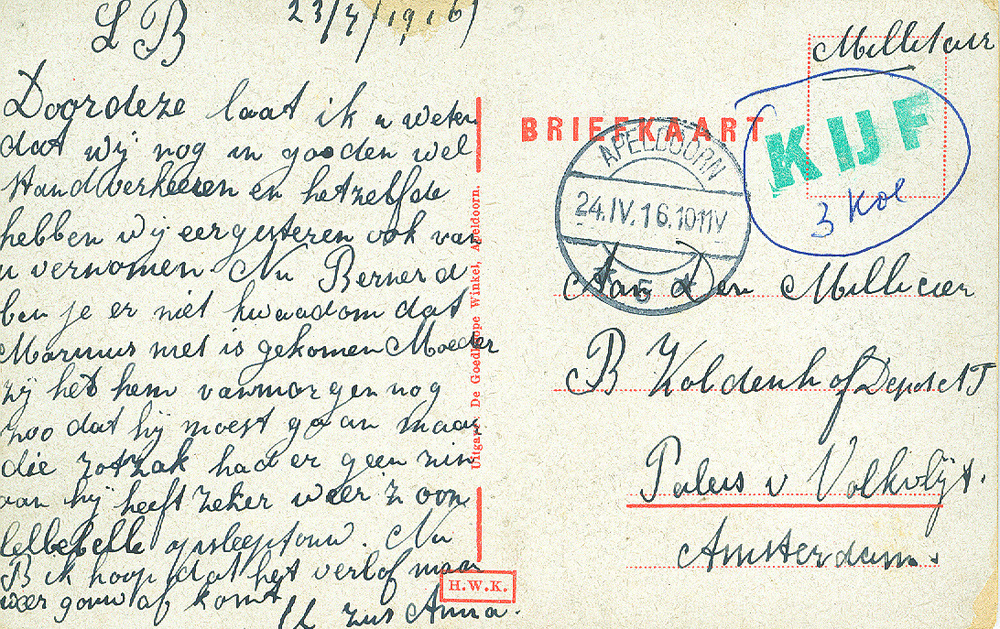 23/4/1916
L B
Doordeze laat ik u weten
dat wij nog in gooden wel
stand verkeeren en hetzelfde
hebben wij eergisteren ook van
u vernomen Nu Bernerd
ben je er niet kwaadom dat
Marinus niet is gekomen Moeder
zij het hem vanmorgen nog
zoo dat hij moest gaan maar
die zotzak had er geen zin
aan hij heeft zeker weer zoon
lellebelle opsleeptouw. Nu
B ik hoop dat het verlof maar
weer gouw af komt
Uw zus Anna.
Uitgave: De Goedkoope Winkel, Apeldoorn.
H.W.K.
Millitair
BRIEFKAART
APELDOORN
24.IV.16.1011V
5
KIJF
3 Kol
Aan Den Millitair
B Koldenhof Depot
Paleis v Volkvlijt.
Amsterdam.